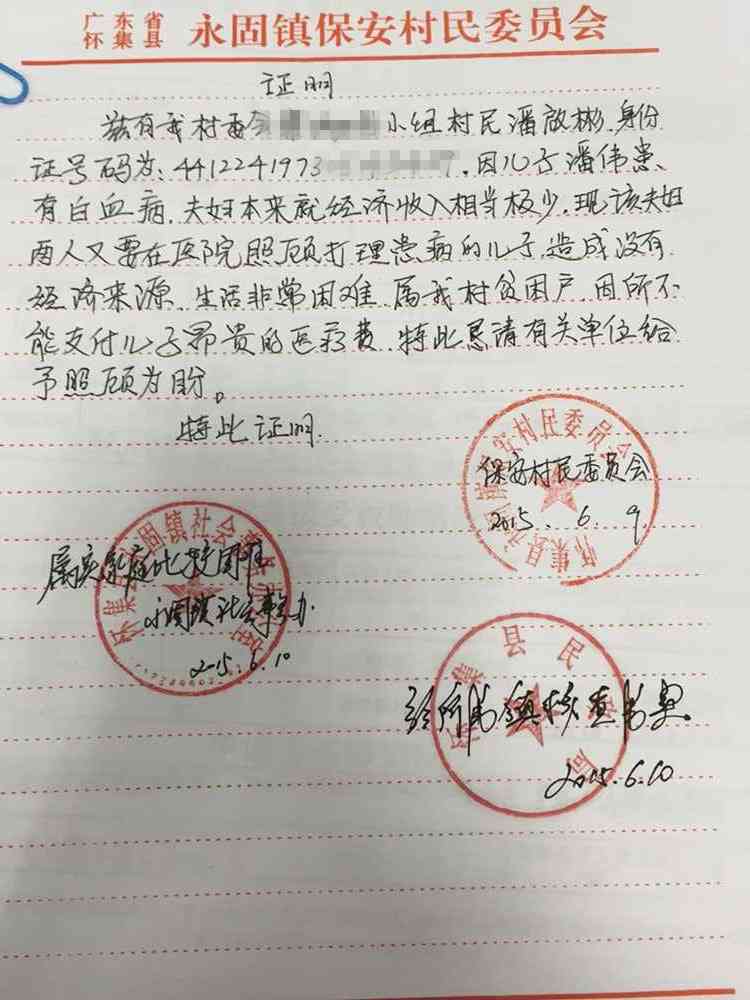 广东省
怀集县 永固镇保安村民委员会
证明
兹有我村委会 小组村民潘放彬,身份
证号码为:4412241973 ,因儿子潘伟患
有白血病,夫妇本来就经济收入相当极少,现该夫妇
两人又要在医院照顾打理患病的儿子,造成没有
经济来源,生活非常困难,属我村贫困户,因所不
能支付儿子昂贵的医疗费,特此恳请有关单位给
予照顾为盼。
特此证明.
保安村民委员会
2015. 6. 9.
属实家庭比较困难
永固镇社会事务办
2015.6.10
经所属镇核查属实.
2015.6.10
怀集县永固镇保安村民委员会
怀集县永固镇社会事务办公室
怀集县民政局